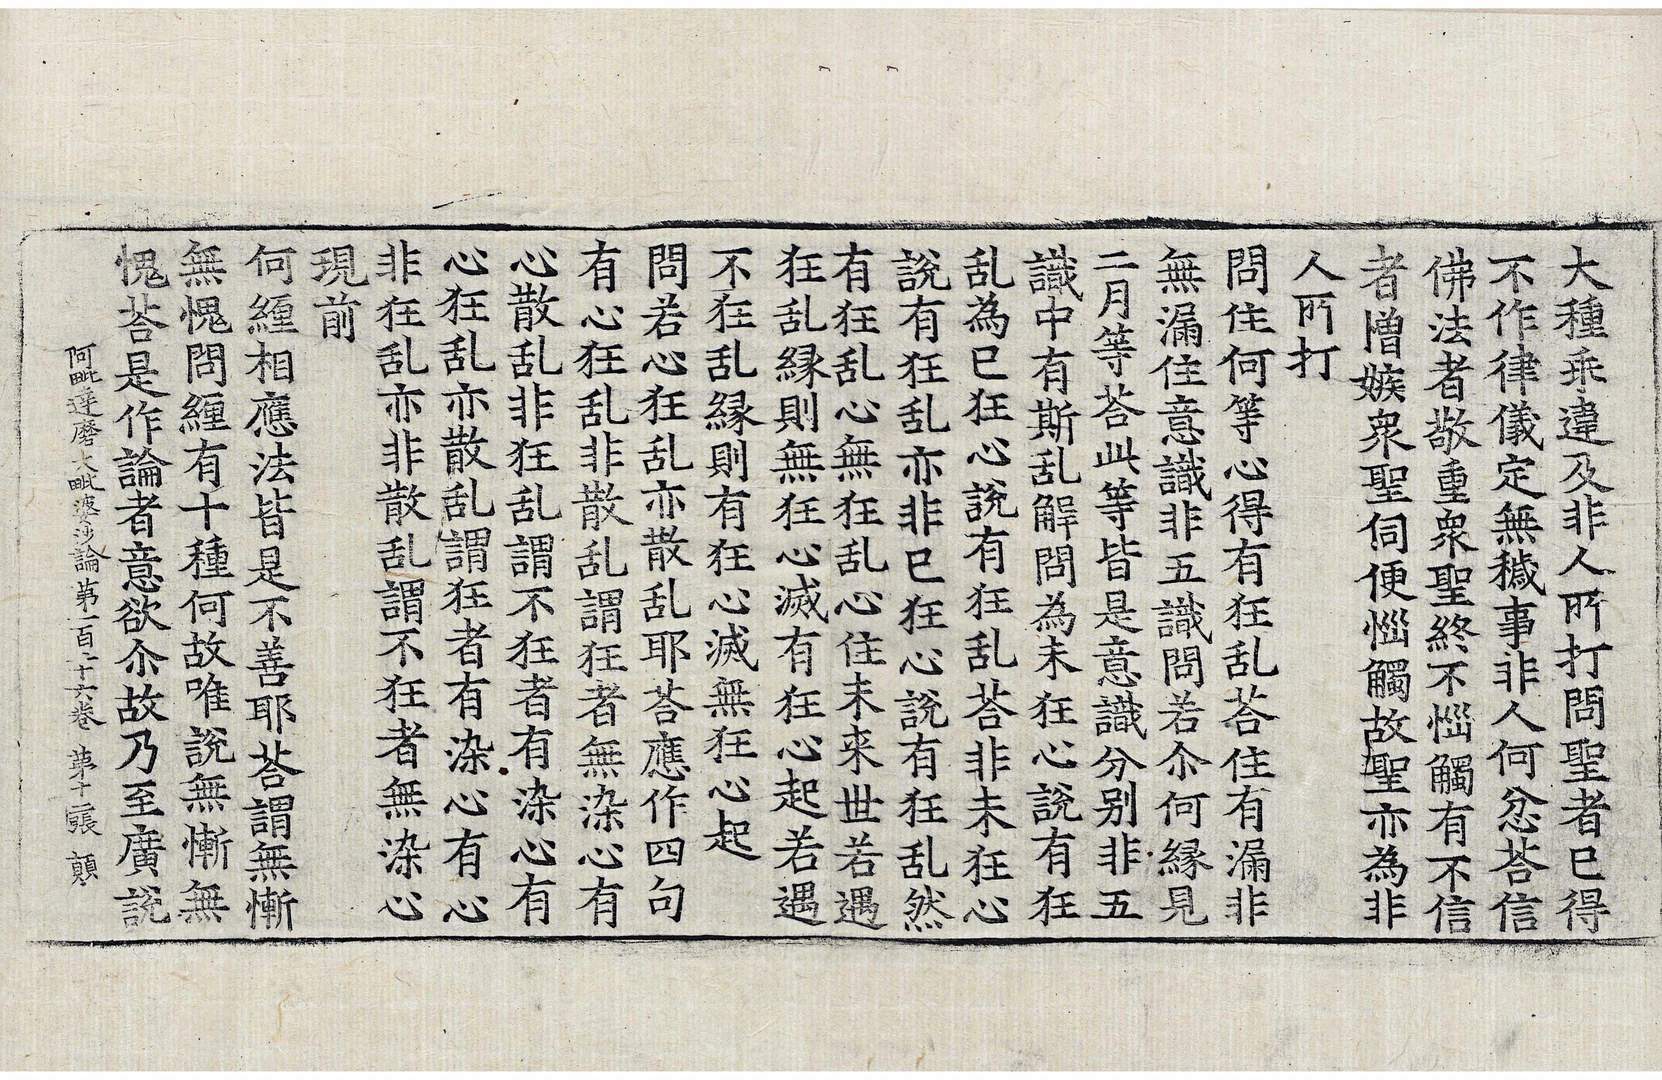 大種乖違及非人所打問聖者已得
不作律儀定無穢事非人何忿荅信
佛法者敬重衆聖終不惱觸有不信
者憎嫉衆聖伺便惱觸故聖亦為非
人所打
問住何等心得有狂乱荅住有漏非
無漏住意識非五識問若尒何緣見
二月等荅此等皆是意識分别非五
識中有斯乱解問為未狂心說有狂
乱為已狂心說有狂乱荅非未狂心
說有狂乱亦非已狂心說有狂乱然
有狂乱心無狂乱心住未来世若遇
狂乱緣則無狂心滅有狂心起若遇
不狂乱緣則有狂心滅無狂心起
問若心狂乱亦散乱耶荅應作四句
有心狂乱非散乱謂狂者無染心有
心散乱非狂乱謂不狂者有染心有
心狂乱亦散乱謂狂者有染心有心
非狂乱亦非散乱謂不狂者無染心
現前
何纏相應法皆是不善耶荅謂無慚
無愧問纏有十種何故唯說無慚無
愧荅是作論者意欲尒故乃至廣說
阿毗達磨大毗婆沙論第一百二十六卷 第十二張 顛